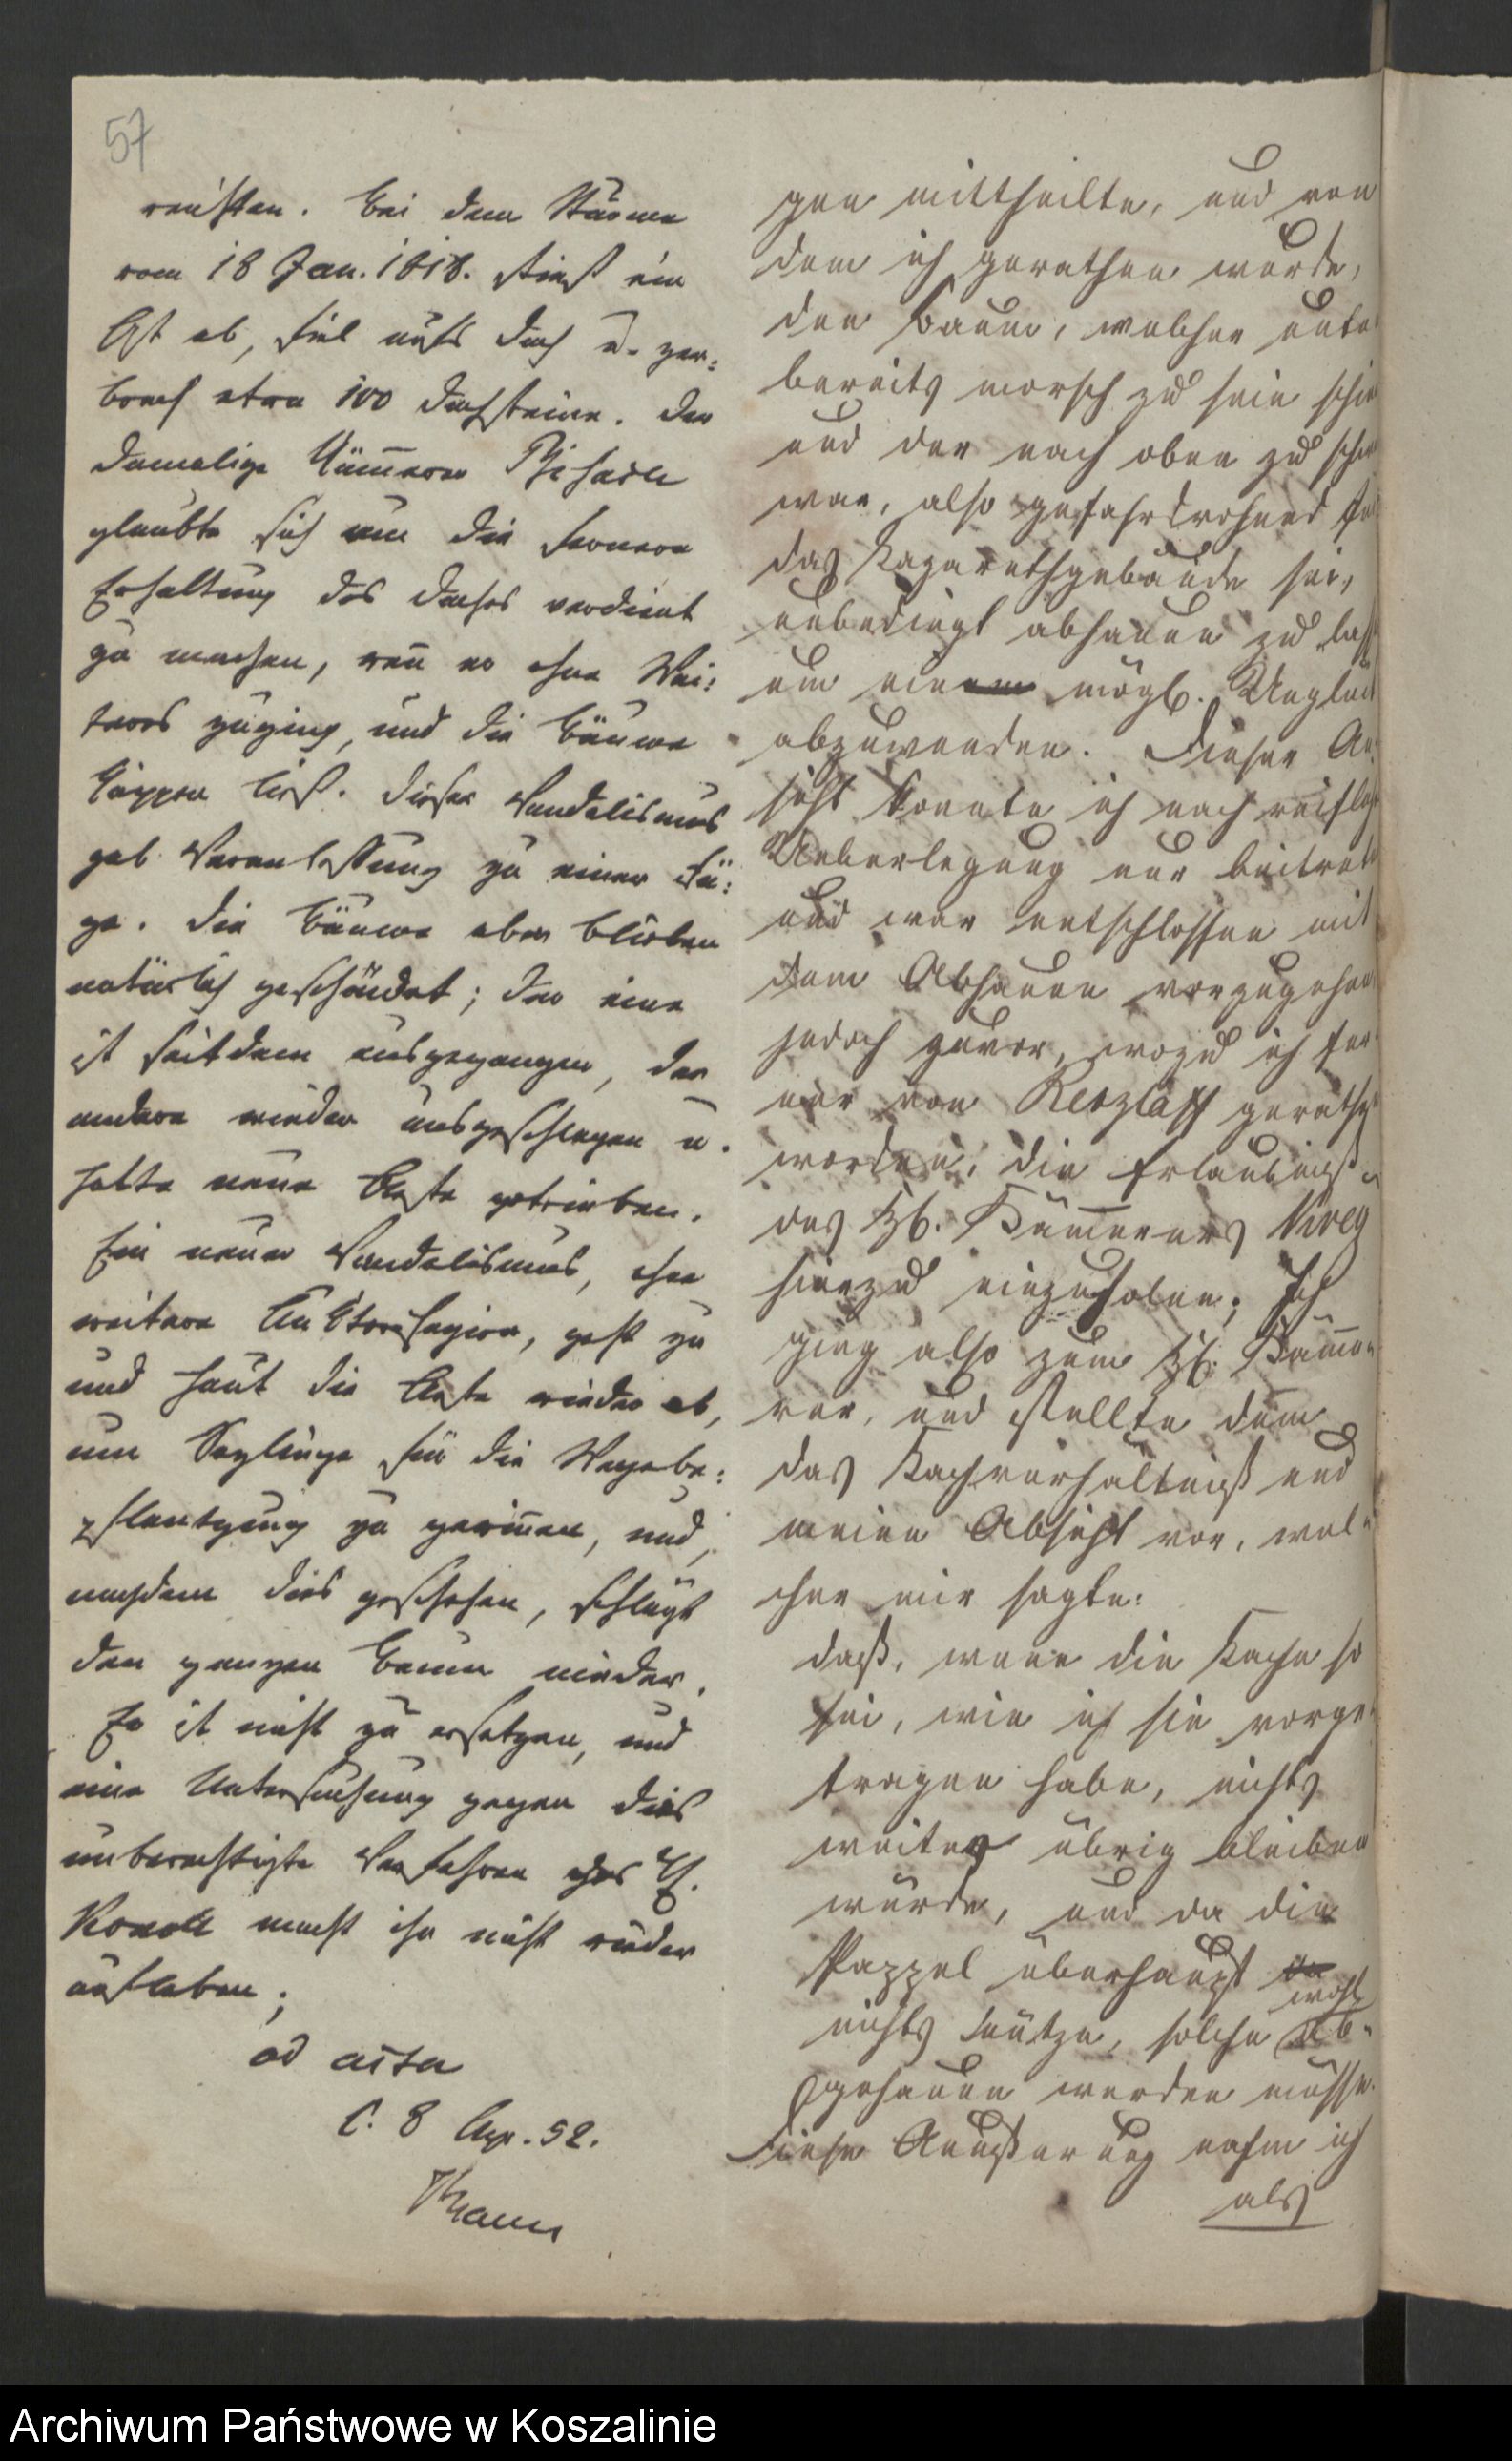 57
reichten. Bei dem Sturme
vom 18 Jan. 1818. stieß ein
Ast ab, fiel aufs Dach u. zer-
brach etwa 100 Dachsteine. Der
damalige Kämmerer
glaubte sich um die fernere
Erhaltung des Daches verdient
zu machen, wenn er ohne Wei-
teres zuging, und die Bäume
kappen ließ. Dieser Vandalismus
gab Veranlassung zu einer Rü-
ge. Die Bäume aber blieben
natürlich geschändet; der eine
ist seitdem ausgegangen, der
andere wieder ausgeschlagen u.
hatte neue Aeste getrieben.
Ein neuer Vandalismus, ohne
weitere Authorisation, geht zu
und haut die Aeste wieder ab,
um Setzlinge für die Wegebe-
pflantzung zu gewinnen, und,
nachdem dies geschehen, schlägt
den ganzen Baum nieder.
Er ist nicht zu ersetzen, und
eine Untersuchung gegen dies
unberechtigte Verfahren des H.
macht ihn nicht wieder
aufleben;
ad acta
C. 8 Apr. 52.
Braun
gen mittheilte, und von
dem ich gerathen wurde,
den Baum, welcher unte
bereits morsch zu sein schie
und der nach oben zu schwer
war, also gefahrdrohend für
das Lazarethgebäude sei,
unbedingt abhauen zu lass
um ein mögl. Unglück
abzuwenden. Dieser An-
sicht konnte ich nach reiflich
Ueberlegung nur beitret
und war entschlossen mit
dem Abhauen vorzugehen
jedoch zuvor, wozu ich fer-
ner von Retzlaff gerathen
worden, die Erlaubniß
des H. Kämmerers
hierzu einzuholen; Ich
ging also zum H. Kämme-
rer, und stellte dem
das Sachverhältniß und
meine Absicht vor, wel-
cher mir sagte:
daß, wenn die Sache so
sei, wie ich sie vorge-
tragen habe, nichts
weiter übrig bleiben
würde, und da die
Pappel überhaupt
nichts nütze, solche wohl ab-
gehauen werden müsse.
Diese Aeußerung nahm ich
als
Archiwum Państwowe w Koszalinie